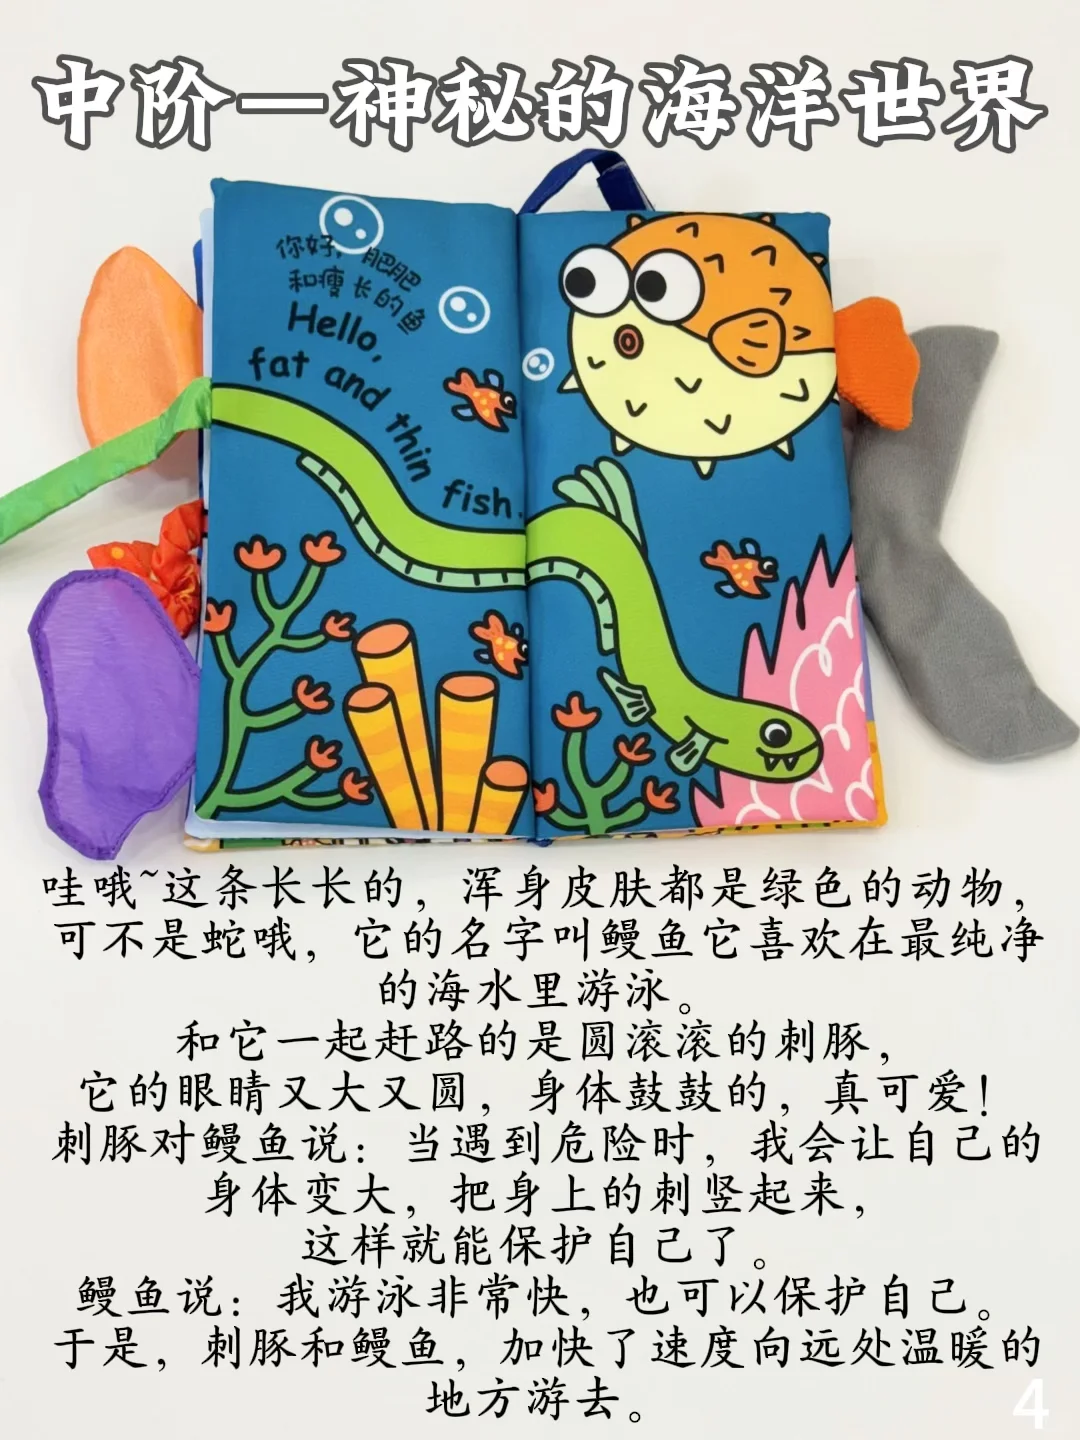 中阶一神秘的海洋世界
你好，肥肥
和瘦长的鱼
Hello,
fat and thin fish.
哇哦~这条长长的，浑身皮肤都是绿色的动物，
可不是蛇哦，它的名字叫鳗鱼它喜欢在最纯净
的海水里游泳。
和它一起赶路的是圆滚滚的刺豚，
它的眼睛又大又圆，身体鼓鼓的，真可爱！
刺豚对鳗鱼说：当遇到危险时，我会让自己的
身体变大，把身上的刺竖起来，
这样就能保护自己了。
鳗鱼说：我游泳非常快，也可以保护自己。
于是，刺豚和鳗鱼，加快了速度向远处温暖的
地方游去。
4